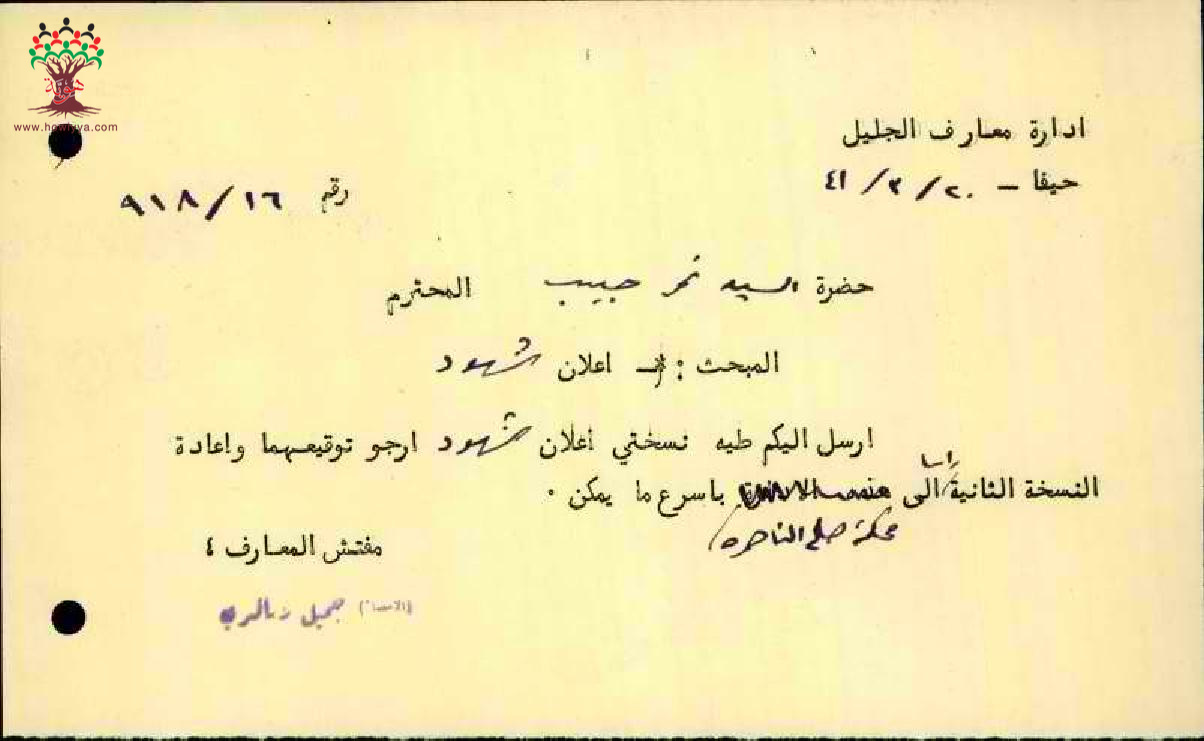 هوية
www.howiyya.com
ادارة معارف الجليل
حيفا - ٢٠/٣/٤١
رقم ٩١٨/١٦
حضرة السيد نمر حبيب المحترم
المبحث : - اعلان شهود
ارسل اليكم طيه نسختي اعلان شهود ارجو توقيعهما واعادة
النسخة الثانية رأسا الى باسرع ما يمكن ٠
محكمة صلح الناصره
مفتش المعارف ٤
(الامضاء) جميل